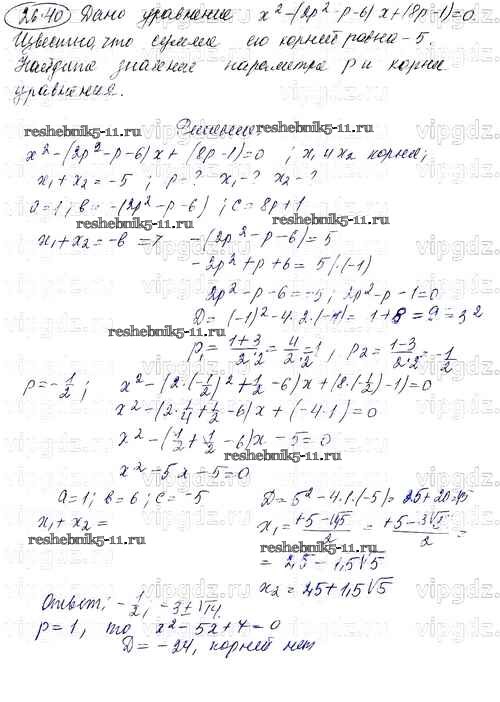 26.40 Дано уравнение x² - (2p² - p - 6)x + (8p - 1) = 0.
Известно, что сумма его корней равна -5.
Найдите значение параметра p и корни
уравнения.
Решение
reshebnik5-11.ru reshebnik5-11.ru
x² - (2p² - p - 6)x + (8p - 1) = 0 ; x₁ и x₂ корни;
x₁ + x₂ = -5 ; p = ? x₁ - ? x₂ - ?
a = 1 ; b = -(2p² - p - 6) ; c = 8p + 1
reshebnik5-11.ru reshebnik5-11.ru
x₁ + x₂ = -b = 7 -(2p² - p - 6) = 5
-2p² + p + 6 = 5 /·(-1)
2p² - p - 6 = -5 ; 2p² - p - 1 = 0
D = (-1)² - 4·2·(-1) = 1 + 8 = 9 = 3²
reshebnik5-11.ru
p₁ = (1+3)/(2·2) = 4/(2·2) = 1 ; p₂ = (1-3)/(2·2) = -1/2
reshebnik5-11.ru
p = -1/2 ; x² - (2·(-1/2)² + 1/2 - 6)x + (8·(-1/2) - 1) = 0
x² - (2·1/4 + 1/2 - 6)x + (-4·1) = 0
x² - (1/2 + 1/2 - 6)x - 5 = 0
x² - 5x - 5 = 0
a = 1 ; b = 6 ; c = -5 D = 5² - 4·1·(-5) = 25 + 20 = 45
x₁ + x₂ = x₁ = (+5 - √45)/2 = (+5 - 3√5)/2 =
reshebnik5-11.ru reshebnik5-11.ru
= 2,5 - 1,5√5
x₂ = 2,5 + 1,5√5
Ответ: -1/2, -3 ± √14.
p = 1, то x² - 5x + 7 = 0
D = -24, корней нет
reshebnik5-11.ru
vipgdz.com